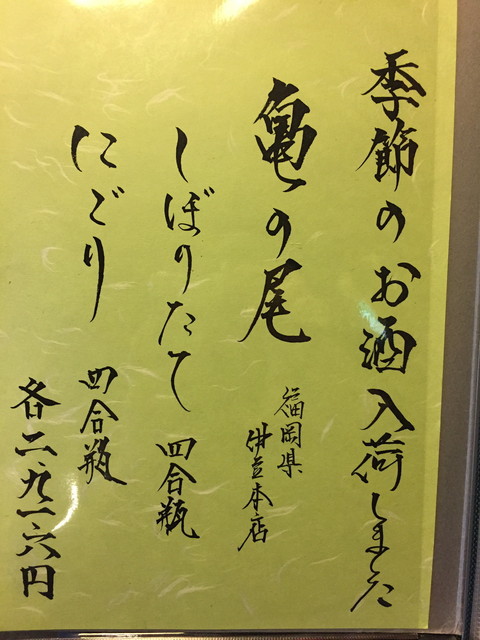 季節のお酒入荷しました
亀の尾
福岡県
伊豆本店
しぼりたて 四合瓶
にごり 四合瓶
各二、九一六円